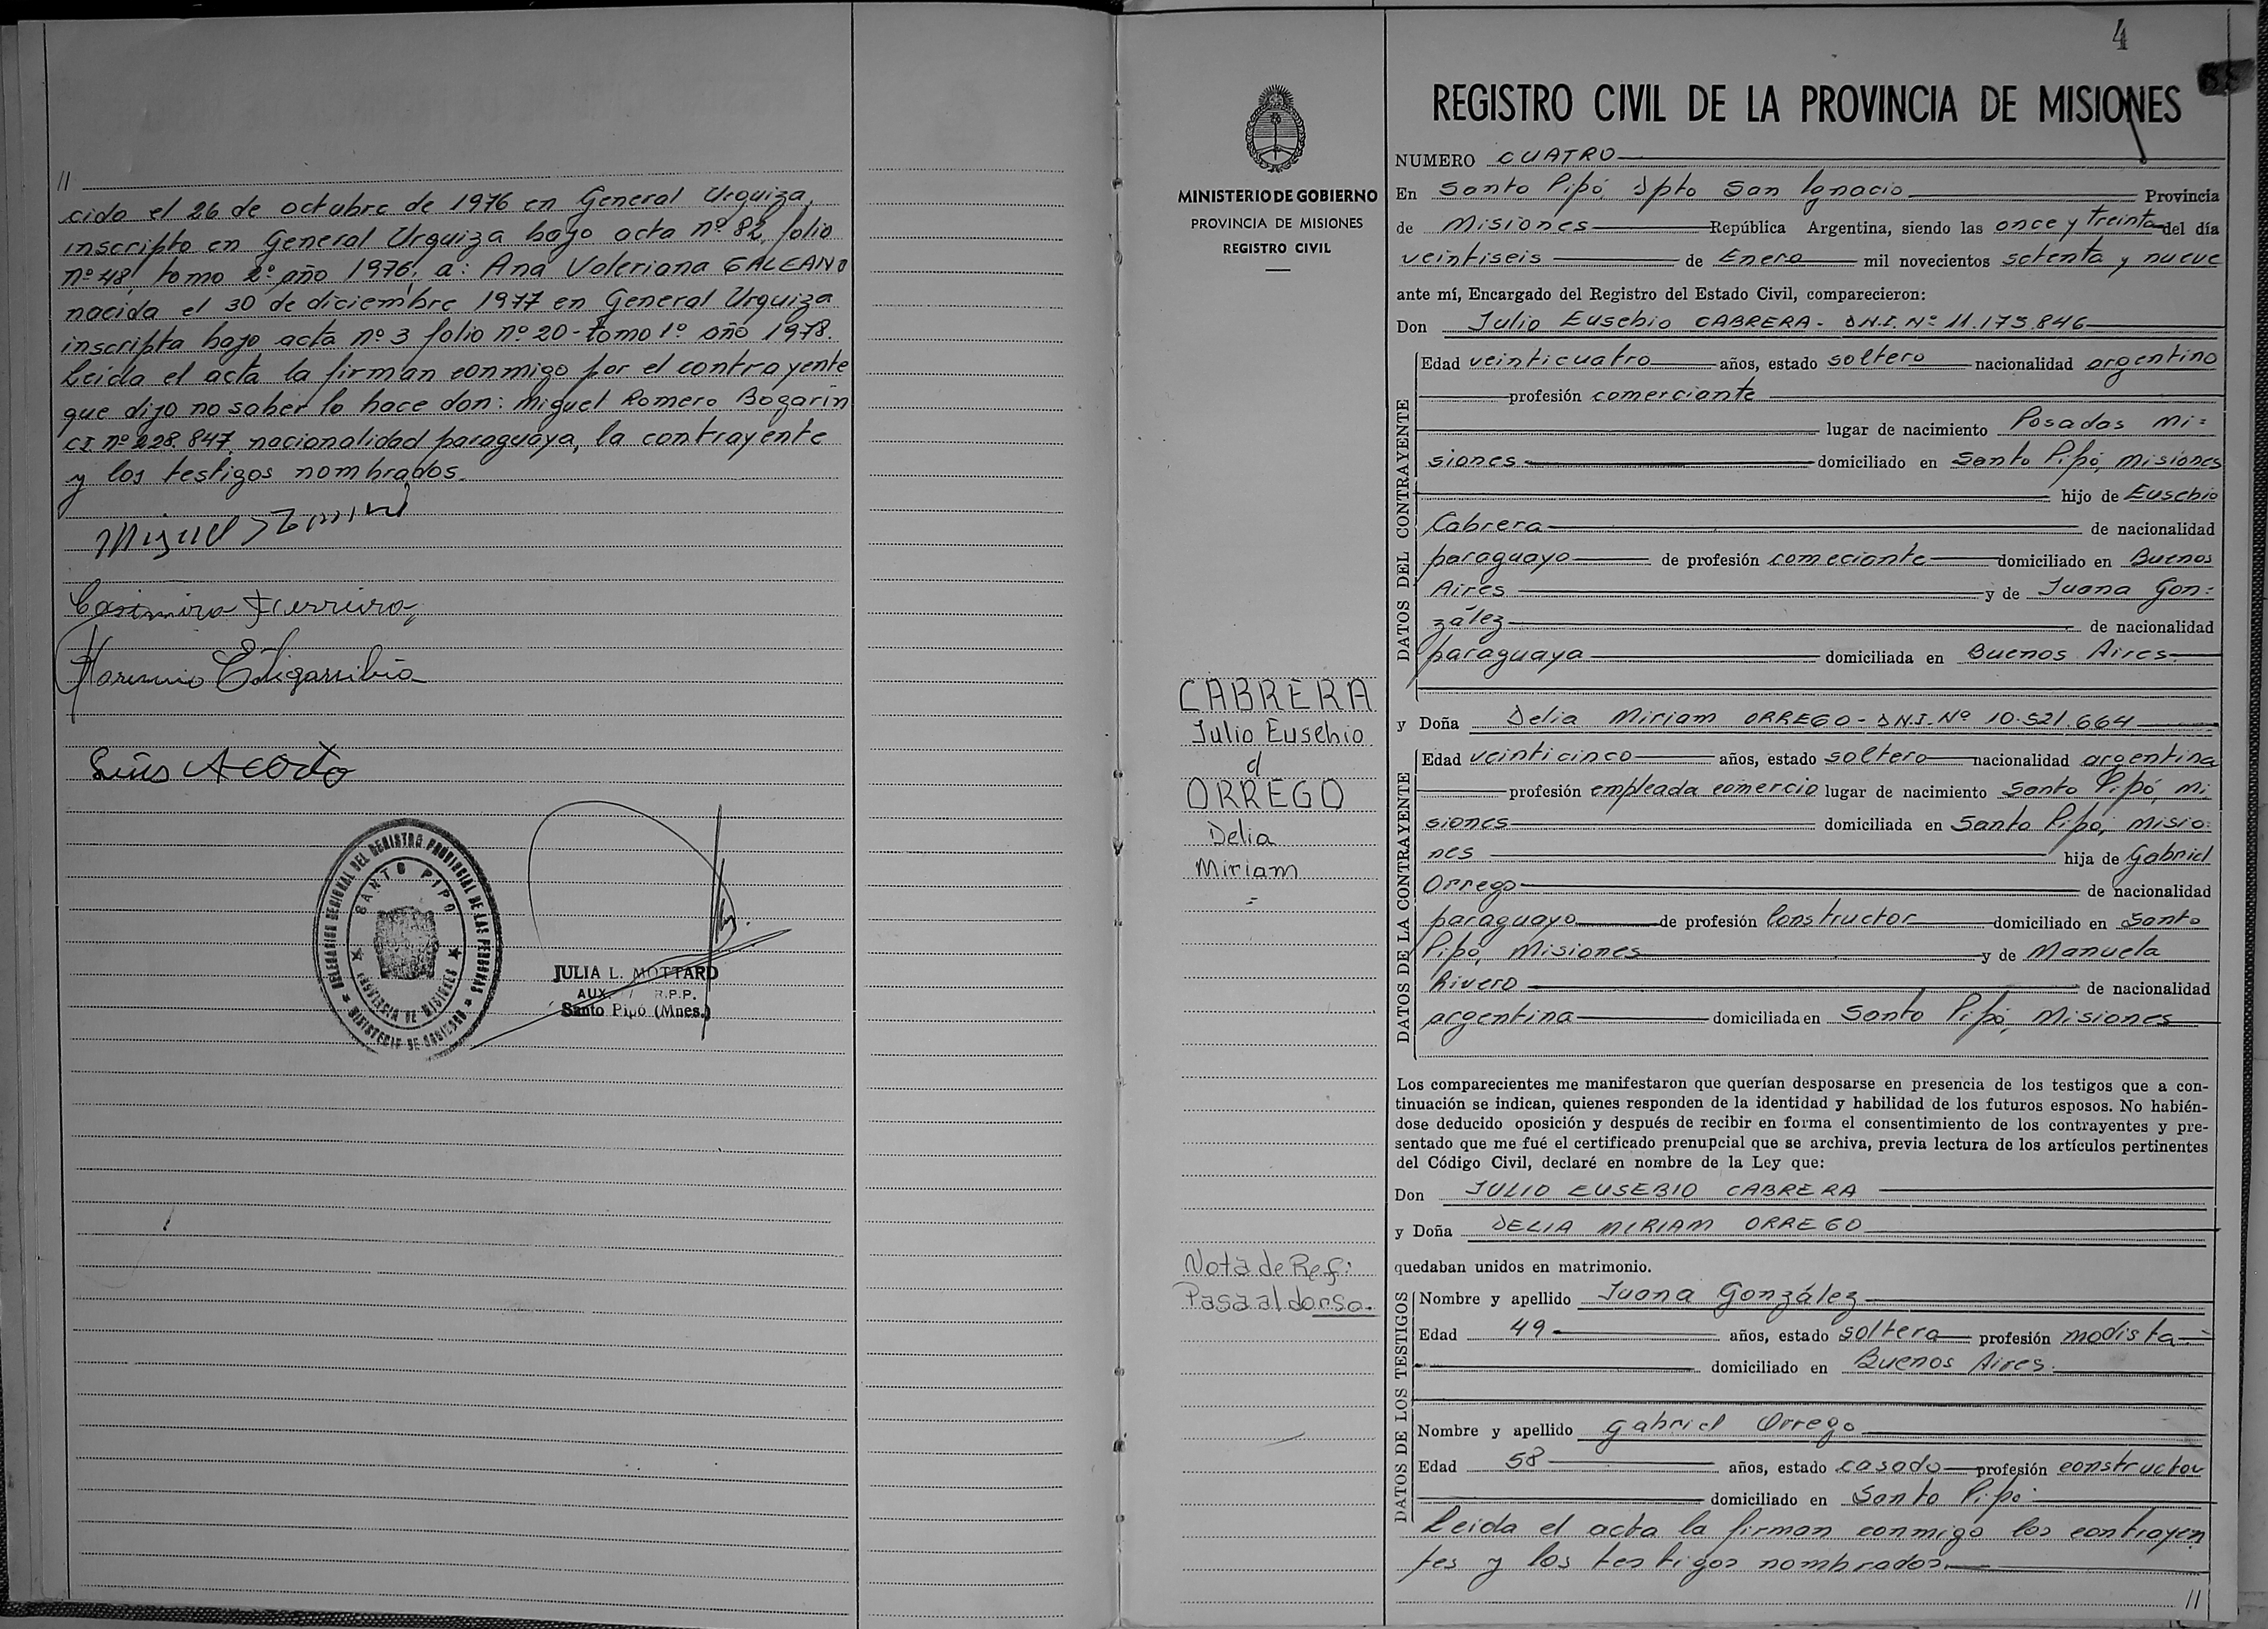 //
cido el 26 de octubre de 1976 en General Urquiza,
inscripto en General Urquiza bajo acta nº 82, folio
nº 48, tomo 2º año 1976; a: Ana Valeriana GALEANO
nacida el 30 de diciembre 1977 en General Urquiza
inscripta bajo acta nº 3 folio nº 20 - tomo 1º año 1978.
Leida el acta la firman conmigo por el contrayente
que dijo no saber lo hace don: Miguel Romero Bogarín
CI nº 228.847, nacionalidad paraguaya, la contrayente
y los testigos nombrados.
Miguel
Casimira Ferreira
Estigarribia
Luis Acosta
DELEGACION REGIONAL DEL REGISTRO PROVINCIAL DE LAS PERSONAS
MINISTERIO DE GOBIERNO
SANTO PIPO
PROVINCIA DE MISIONES
JULIA L. MOTTARD
AUX. R.P.P.
Santo Pipó (Mnes.)
MINISTERIO DE GOBIERNO
PROVINCIA DE MISIONES
REGISTRO CIVIL
CABRERA
Julio Eusebio
ORREGO
Delia
Miriam
=
Nota de Ref:
Pasa al dorso.
4
REGISTRO CIVIL DE LA PROVINCIA DE MISIONES
NUMERO CUATRO
En Santo Pipó, Dpto San Ignacio Provincia
de Misiones República Argentina, siendo las once y treinta del día
veintiseis de Enero mil novecientos setenta y nueve
ante mí, Encargado del Registro del Estado Civil, comparecieron:
Don Julio Eusebio CABRERA - D.N.I. Nº 11.175.846
DATOS DEL CONTRAYENTE
Edad veinticuatro años, estado soltero nacionalidad argentino
profesión comerciante
lugar de nacimiento Posadas Mi=
siones domiciliado en Santo Pipó, Misiones
hijo de Eusebio
Cabrera de nacionalidad
paraguayo de profesión comeciante domiciliado en Buenos
Aires y de Juana Gon=
zález de nacionalidad
paraguaya domiciliada en Buenos Aires.
y Doña Delia Miriam ORREGO - D.N.I. Nº 10.521.664
DATOS DE LA CONTRAYENTE
Edad veinticinco años, estado soltero nacionalidad argentina
profesión empleada comercio lugar de nacimiento Santo Pipó, Mi
siones domiciliada en Santo Pipó, Misio=
nes hija de Gabriel
Orrego de nacionalidad
paraguayo de profesión Constructor domiciliado en Santo
Pipó, Misiones y de Manuela
Rivero de nacionalidad
argentina domiciliada en Santo Pipó, Misiones
Los comparecientes me manifestaron que querían desposarse en presencia de los testigos que a con-
tinuación se indican, quienes responden de la identidad y habilidad de los futuros esposos. No habién-
dose deducido oposición y después de recibir en forma el consentimiento de los contrayentes y pre-
sentado que me fué el certificado prenupcial que se archiva, previa lectura de los artículos pertinentes
del Código Civil, declaré en nombre de la Ley que:
Don JULIO EUSEBIO CABRERA
y Doña DELIA MIRIAM ORREGO
quedaban unidos en matrimonio.
DATOS DE LOS TESTIGOS
Nombre y apellido Juana González
Edad 49 años, estado soltera profesión modista
domiciliado en Buenos Aires.
Nombre y apellido Gabriel Orrego
Edad 58 años, estado casado profesión constructor
domiciliado en Santo Pipó
Leida el acta la firman conmigo los contrayen
tes y los testigos nombrados.
//